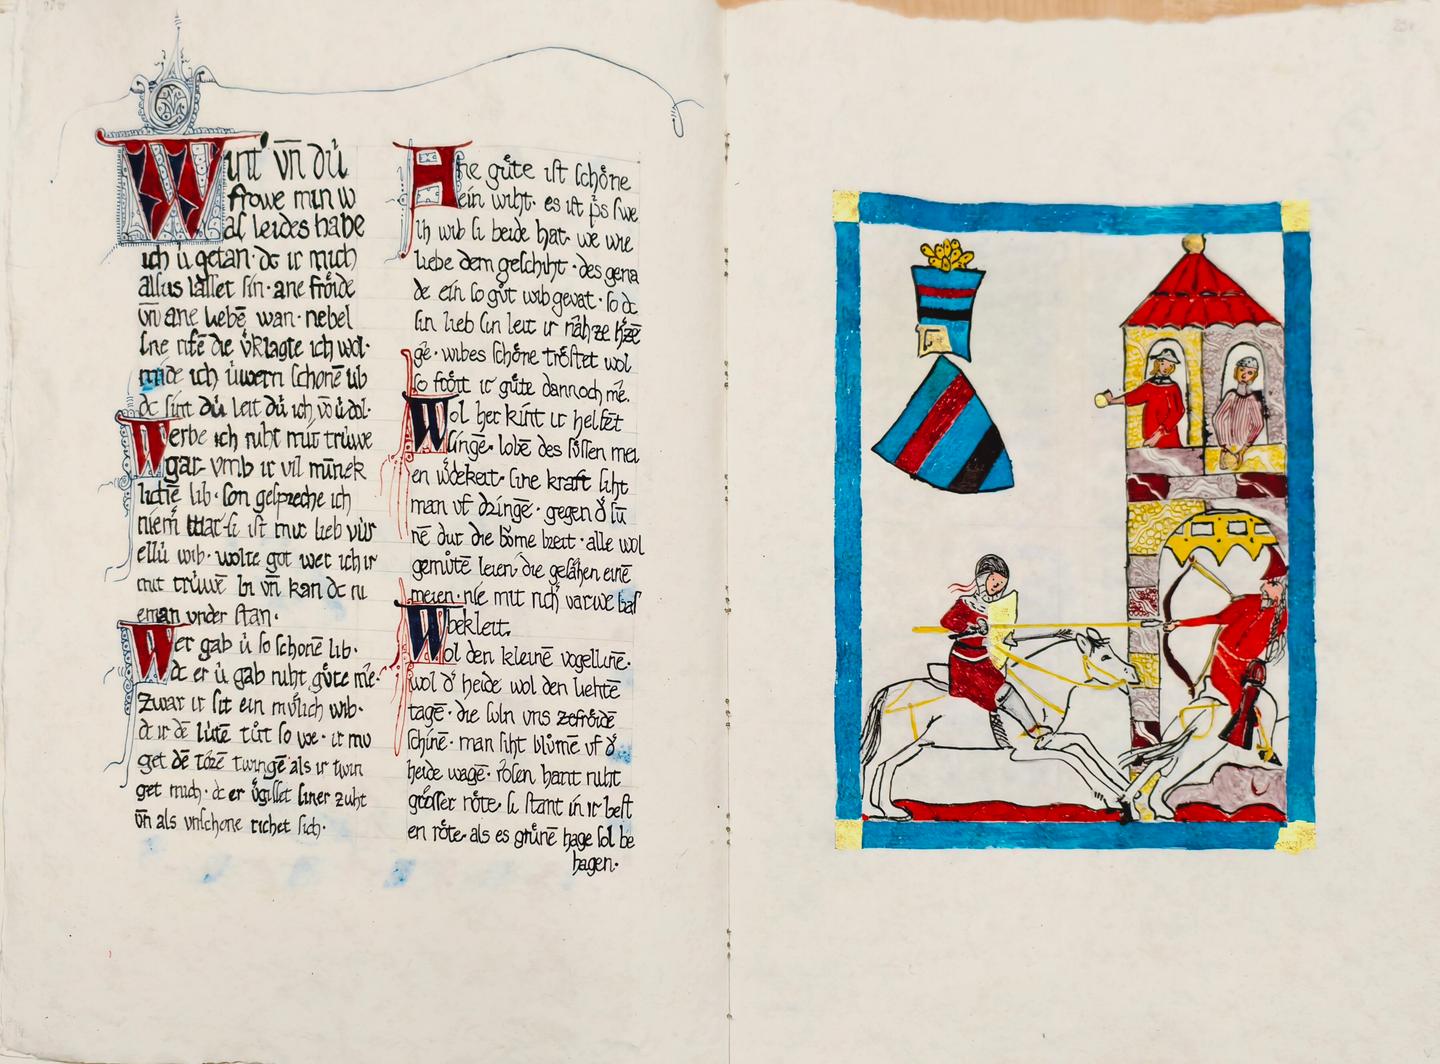 Wint vn̄ dů
frowe min w
as leides habe
ich ů getan· dc ir mich
alsus lasset sin· ane frōide
vn̄ ane liebē wan· nebel
sne rifē die v̓klagte ich wol·
mide ich ůwern schonē lib
dc sint dů leit dů ich vō ů dol·
Werbe ich niht mit trůwe
gar· vmb ir vil mīnek
lichē lib· son gespreche ich
niem̄ mar· si ist mir lieb vůr
ellů wib· wolte got wer ich ir
mit trůwē bi vn̄ kan dc ni
eman vnder stan·
Wer gab ů so schonē lib·
dc er ů gab niht gůte me·
zwar ir sit ein mv̊lich wib·
dc ir dē lůtē tůt so we· ir mv
get dē tōrē twingē als ir twin
get mich· dc er v̓gisset siner zuht
vn̄ als vnschone richet sich·
Ane gůte ist schōne
ein wiht· es ist p̄s swe
ich wib si beide hat· we wie
liebe dem geschiht· des gena
de ein so gůt wib gevat· so dc
sin lieb sin leit ir nāh ze h̓zē
ge· wibes schōne trōstet wol
so frōit ir gůte dannoch me·
Wol her kint ir helfet
singē· lobē des sůssen mei
en w̓dekeit· sine kraft siht
man vf dringē· gegen d̓ sū
nē dur die bōme breit· alle wol
gemůte leien· die gesāhen einē
meien· nie mit rich varwe bas
bekleit.
Wol den kleinē vogellinē·
wol d̓ heide wol den liehtē
tagē· die suln vns zefrōidē
schinē· man siht blůmē vf d̓
heide wagē· rosen hant niht
grōsser rōte· si stant in ir best
en rōte· als es grůnē hage sol be
hagen·